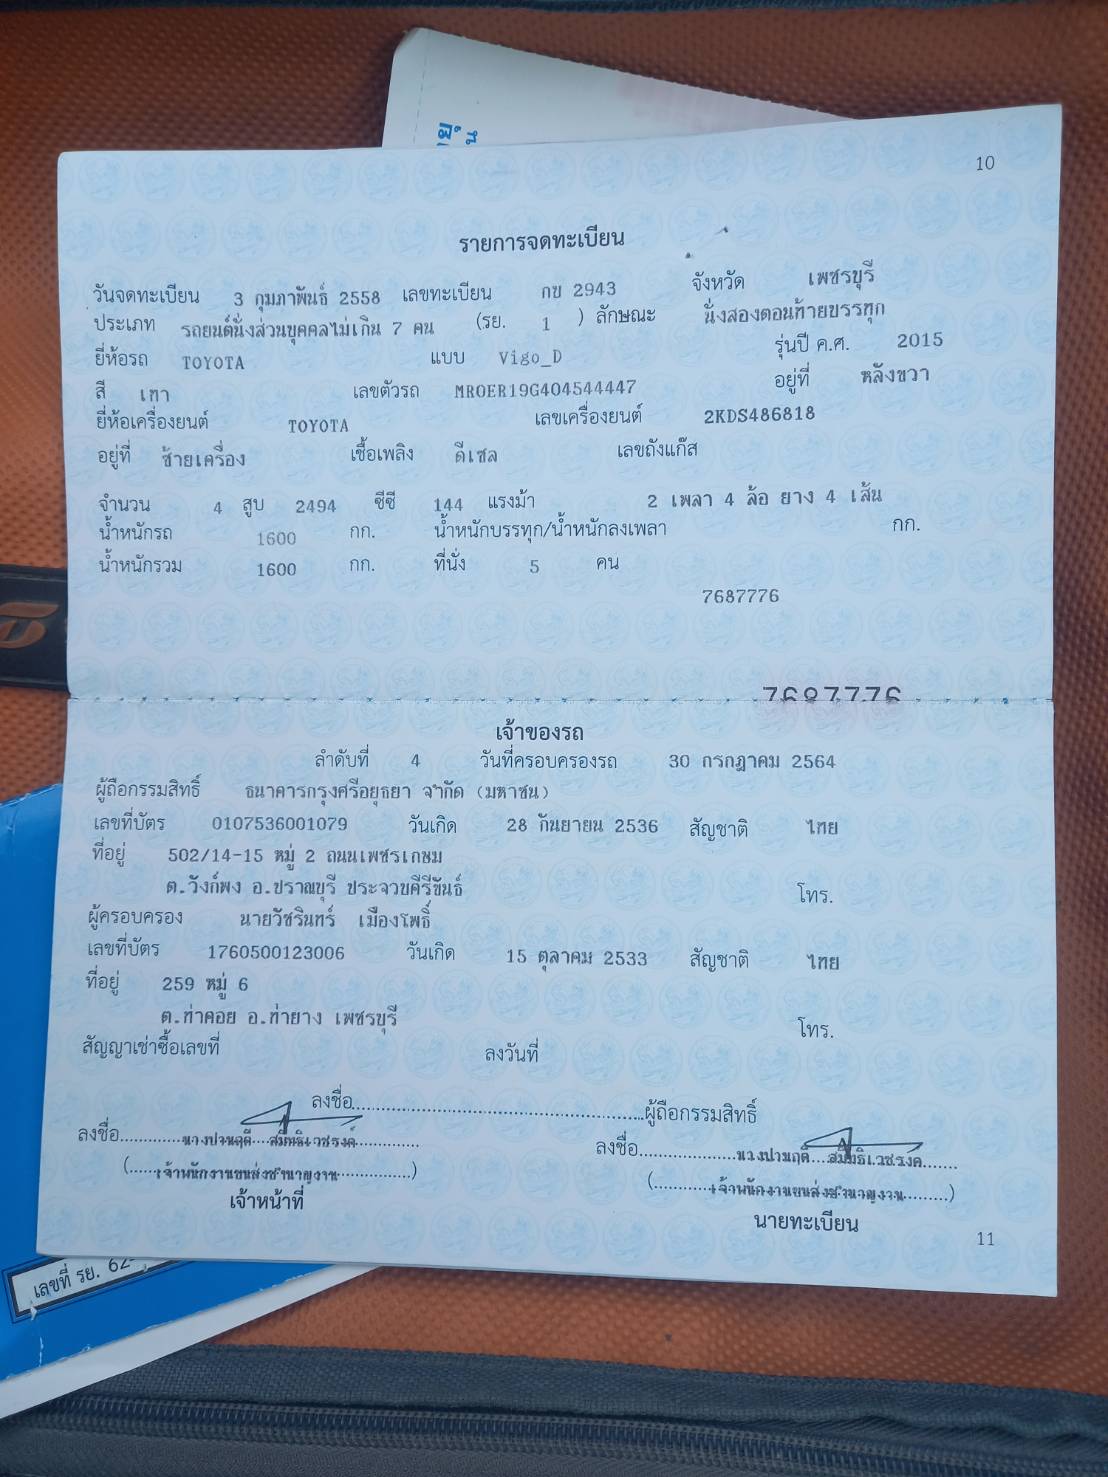 10
รายการจดทะเบียน
วันจดทะเบียน 3 กุมภาพันธ์ 2558 เลขทะเบียน กข 2943 จังหวัด เพชรบุรี
ประเภท รถยนต์นั่งส่วนบุคคลไม่เกิน 7 คน (รย. 1 ) ลักษณะ นั่งสองตอนท้ายบรรทุก
ยี่ห้อรถ TOYOTA แบบ Vigo_D รุ่นปี ค.ศ. 2015
สี เทา เลขตัวรถ MROER19G404544447 อยู่ที่ หลังขวา
ยี่ห้อเครื่องยนต์ TOYOTA เลขเครื่องยนต์ 2KDS486818
อยู่ที่ ซ้ายเครื่อง เชื้อเพลิง ดีเซล เลขถังแก๊ส
จำนวน 4 สูบ 2494 ซีซี 144 แรงม้า 2 เพลา 4 ล้อ ยาง 4 เส้น
น้ำหนักรถ 1600 กก. น้ำหนักบรรทุก/น้ำหนักลงเพลา กก.
น้ำหนักรวม 1600 กก. ที่นั่ง 5 คน
7687776
7687776
เจ้าของรถ
ลำดับที่ 4 วันที่ครอบครองรถ 30 กรกฎาคม 2564
ผู้ถือกรรมสิทธิ์ ธนาคารกรุงศรีอยุธยา จำกัด (มหาชน)
เลขที่บัตร 0107536001079 วันเกิด 28 กันยายน 2536 สัญชาติ ไทย
ที่อยู่ 502/14-15 หมู่ 2 ถนนเพชรเกษม
ต.วังก์พง อ.ปราณบุรี ประจวบคีรีขันธ์ โทร.
ผู้ครอบครอง นายวัชรินทร์ เมืองโพธิ์
เลขที่บัตร 1760500123006 วันเกิด 15 ตุลาคม 2533 สัญชาติ ไทย
ที่อยู่ 259 หมู่ 6
ต.ท่าคอย อ.ท่ายาง เพชรบุรี โทร.
สัญญาเช่าซื้อเลขที่ ลงวันที่
ลงชื่อ ผู้ถือกรรมสิทธิ์
ลงชื่อ นางปานฤดี ลงชื่อ นางปานฤดี
(เจ้าพนักงานขนส่งชำนาญงาน) (เจ้าพนักงานขนส่งชำนาญงาน)
เจ้าหน้าที่ นายทะเบียน
11
เลขที่ รย. 62-